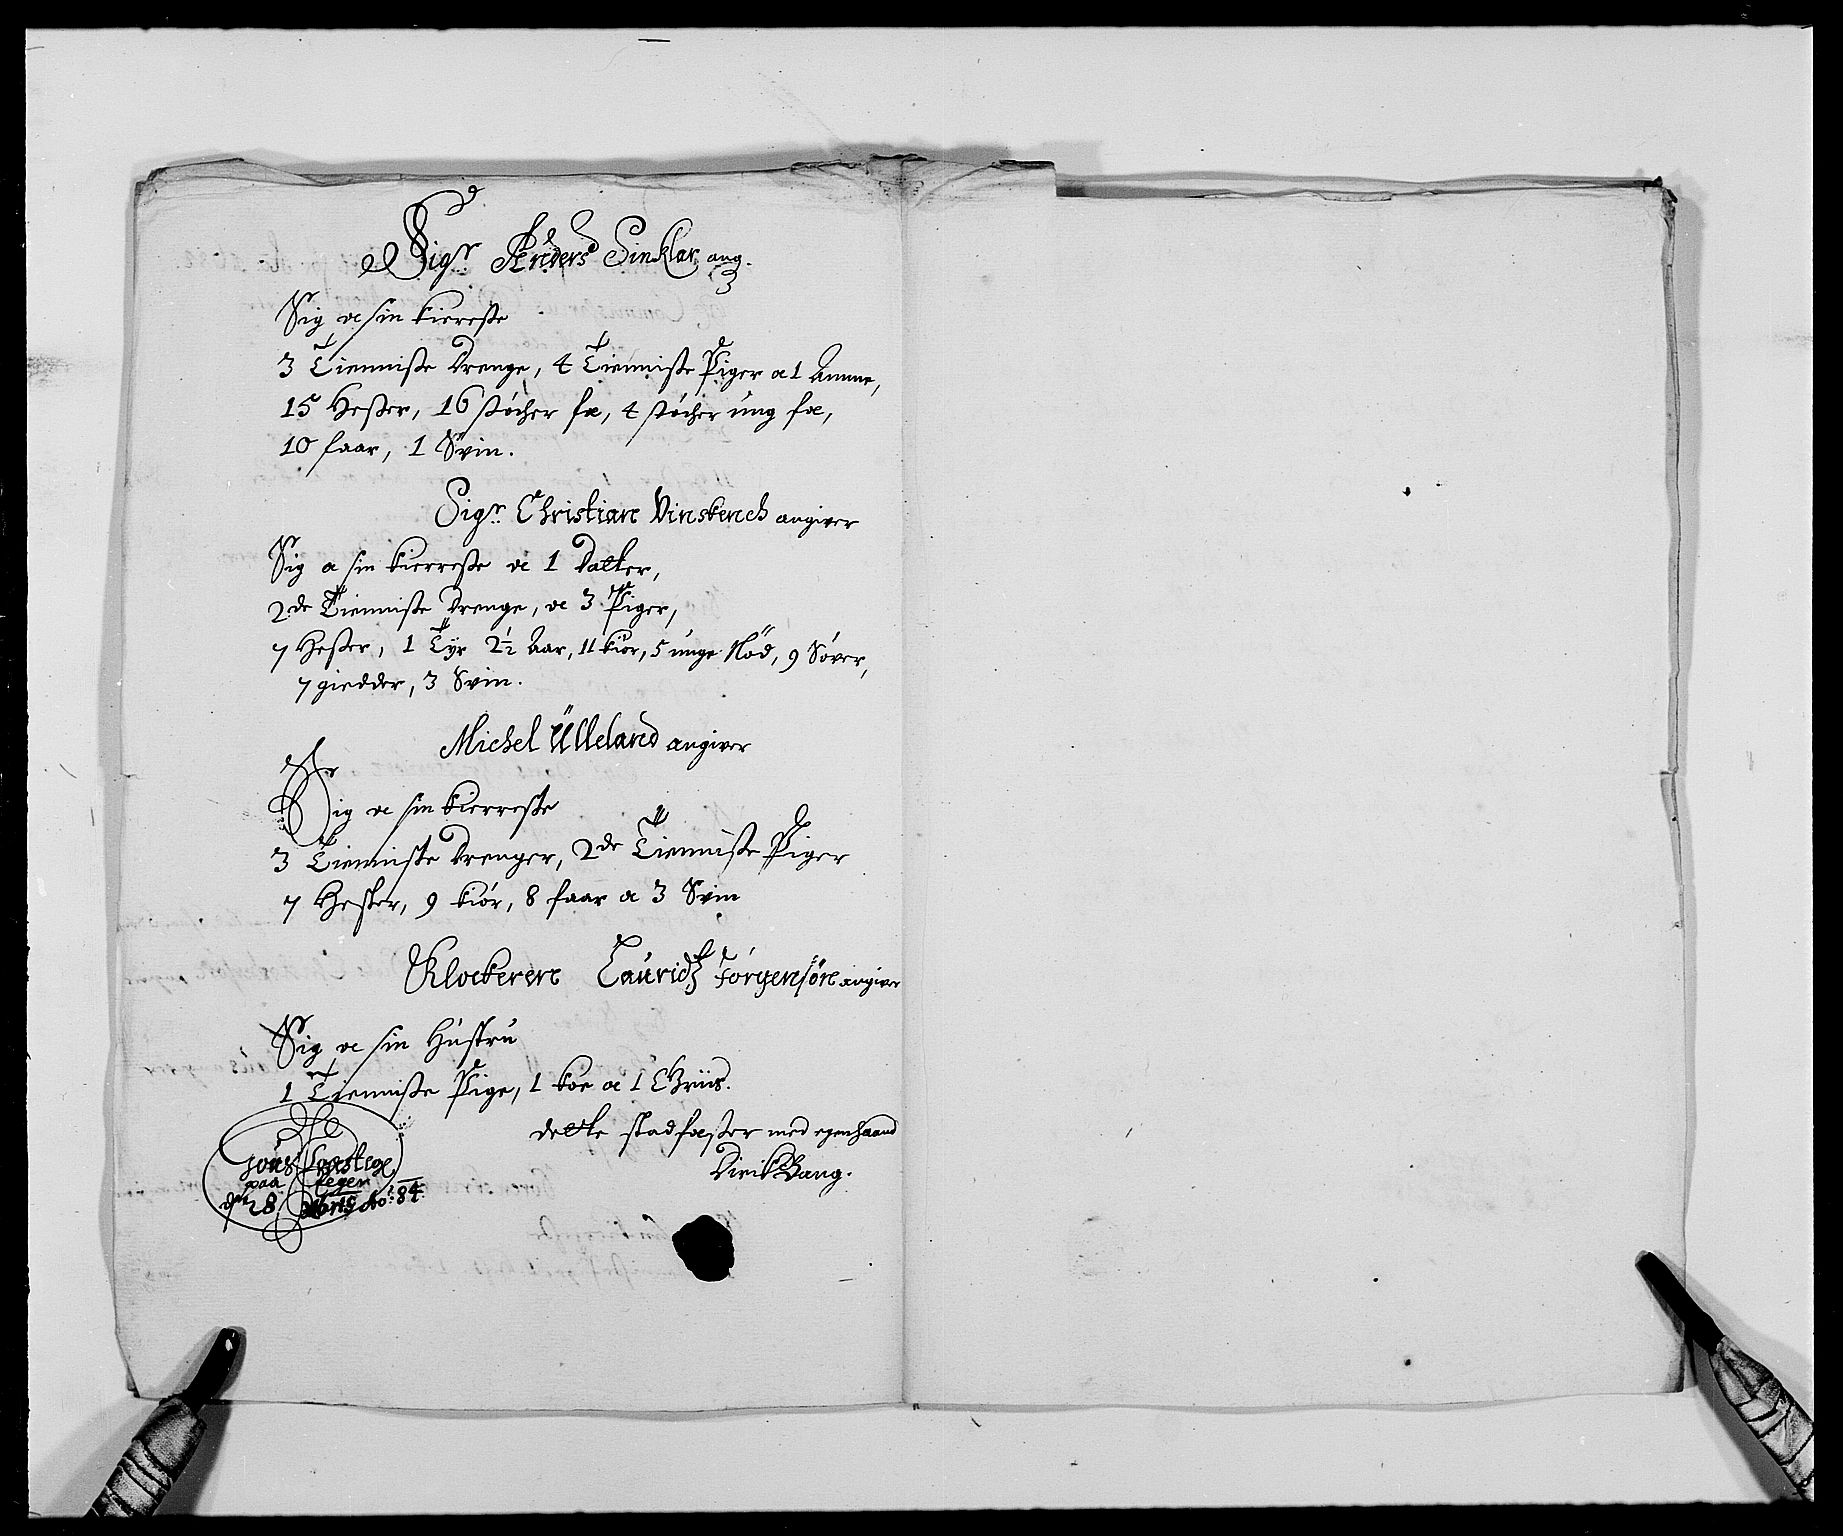 Sigr. Anders Sinklar ang.
Sig oc sin kiereste
3 Tienniste Drenge, 4 Tienniste Piger oc 1 Amme,
15 Hester, 16 støcher fæ, 4 støcher ung fæ,
10 faar, 1 Svin.
Sigr. Christian Vinstench angiver
Sig oc sin kierreste oc 1 Datter,
2de Tienniste Drenge, oc 3 Piger,
7 Hester, 1 Tyr 2½ Aar, 11 kiør, 5 unge Nød, 9 Søver,
7 giedder, 3 Svin.
Michel Ülleland angiver
Sig oc sin kierreste
3 Tienniste Drenger, 2de Tienniste Piger
7 Hester, 9 kiör, 8 faar oc 3 Svin
Klockeren Lauridtz Jörgensön angiver
Sig oc sin Hustru
1 Tienniste Pige, 1 koe oc 1 Griis.
dette stadfæster med egen haand
Dirik Bang.
paa
den 28 No: 84